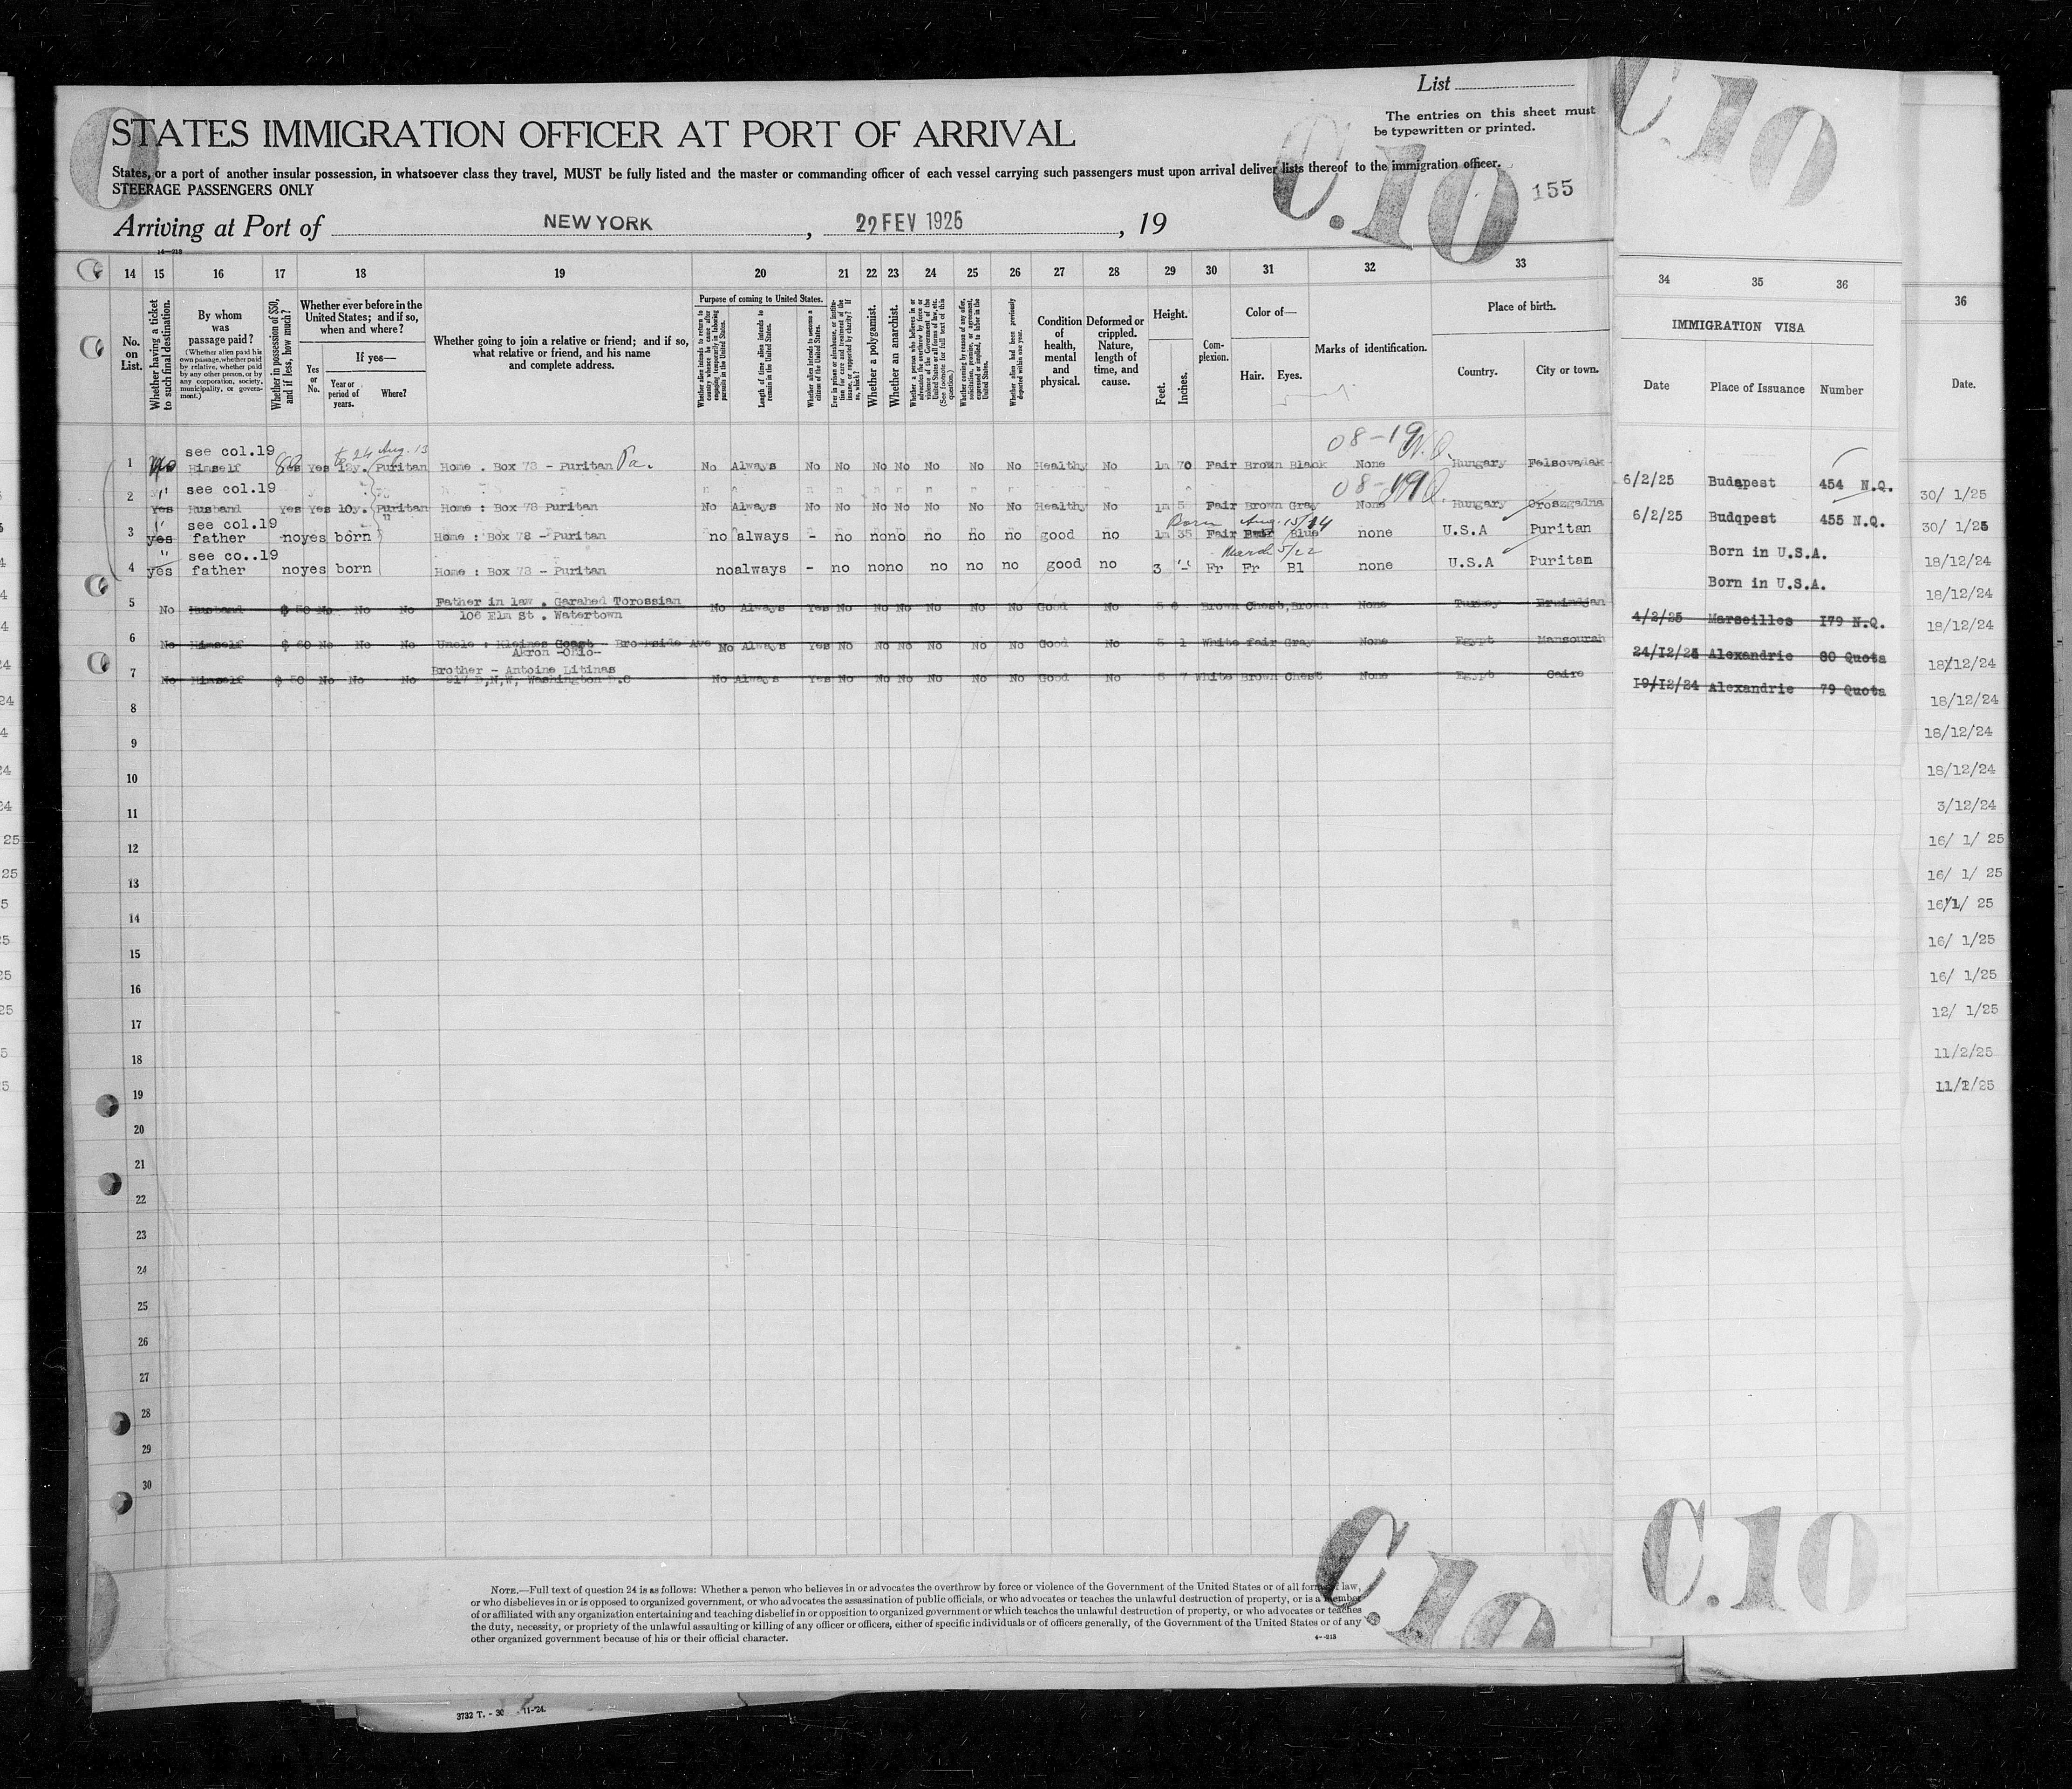 List
The entries on this sheet must
be typewritten or printed.
STATES IMMIGRATION OFFICER AT PORT OF ARRIVAL
States, or a port of another insular possession, in whatsoever class they travel, MUST be fully listed and the master or commanding officer of each vessel carrying such passengers must upon arrival deliver lists thereof to the immigration officer.
STEERAGE PASSENGERS ONLY
C.10
C.10
155
Arriving at Port of NEW YORK , 22 FEV 1925 , 19
14 15 16 17 18 19 20 21 22 23 24 25 26 27 28 29 30 31 32 33
34 35 36
36
No. on List.
Whether having a ticket to such final destination.
By whom was passage paid?
(Whether alien paid his own passage, whether paid by relative, whether paid by any other person, or by any corporation, society, municipality, or government.)
Whether in possession of $50, and if less, how much?
Whether ever before in the United States; and if so, when and where?
Yes or No.
If yes—
Year or period of years.
Where?
Whether going to join a relative or friend; and if so, what relative or friend, and his name and complete address.
Purpose of coming to United States.
Length of time alien intends to remain in the United States.
Whether alien intends to become a citizen of the United States.
Whether a polygamist.
Whether an anarchist.
Condition of health, mental and physical.
Deformed or crippled. Nature, length of time, and cause.
Height.
Feet.
Inches.
Complexion.
Color of—
Hair.
Eyes.
Marks of identification.
Place of birth.
Country.
City or town.
IMMIGRATION VISA
Date
Place of Issuance
Number
Date.
1 see col.19 Himself Yes Yes 12y. Puritan Home . Box 73 - Puritan Pa. No Always No No No No No No No Healthy No 1m 70 Fair Brown Black None Hungary
6/2/25 Budapest 454 N.Q.
2 see col.19 Yes Husband Yes Yes 10y. Puritan Home : Box 78 Puritan No Always No No No No No No No Healthy No 1m 5 Fair Brown Gray None Hungary
6/2/25 Budapest 455 N.Q.
Born Aug. 15/14
3 see col.19 yes father no yes born Home : Box 78 - Puritan no always - no no no no no no good no 1m 35 Fair Fair Blue none U.S.A Puritan
Born in U.S.A.
March 5/22
4 see co..19 yes father no yes born Home : Box 73 - Puritan no always - no no no no no no good no 3 Fr Fr Bl none U.S.A Puritan
Born in U.S.A.
5 No Husband $ 50 No No No Father in law . Garahed Torossian
106 Elm St . Watertown
No Always Yes No No No No No No Good No Brown Chest. Brown None Turkey
4/2/25 Marseilles 179 N.Q.
6 No Himself $ 60 No No No Uncle : Brookside Ave
Akron -Ohio-
No Always Yes No No No No No No Good No 5 1 White fair Gray None Egypt Mansourah
24/12/24 Alexandrie 80 Quota
7 No Himself $ 50 No No No Brother - Antoine Litinas
Washington D.C
No Always Yes No No No No No No Good No 5 7 White Brown Chest None Egypt Caire
19/12/24 Alexandrie 79 Quota
8
9
10
11
12
13
14
15
16
17
18
19
20
21
22
23
24
25
26
27
28
29
30
30/ 1/25
30/ 1/25
18/12/24
18/12/24
18/12/24
18/12/24
18/12/24
18/12/24
18/12/24
3/12/24
16/ 1/ 25
16/ 1/ 25
16/1/ 25
16/ 1/25
16/ 1/25
12/ 1/25
11/2/25
11/2/25
NOTE.—Full text of question 24 is as follows: Whether a person who believes in or advocates the overthrow by force or violence of the Government of the United States or of all forms of law,
or who disbelieves in or is opposed to organized government, or who advocates the assassination of public officials, or who advocates or teaches the unlawful destruction of property, or is a member
of or affiliated with any organization entertaining and teaching disbelief in or opposition to organized government or which teaches the unlawful destruction of property, or who advocates or teaches
the duty, necessity, or propriety of the unlawful assaulting or killing of any officer or officers, either of specific individuals or of officers generally, of the Government of the United States or of any
other organized government because of his or their official character.
C.10
C.10
3732 T. - 30 11-'24.